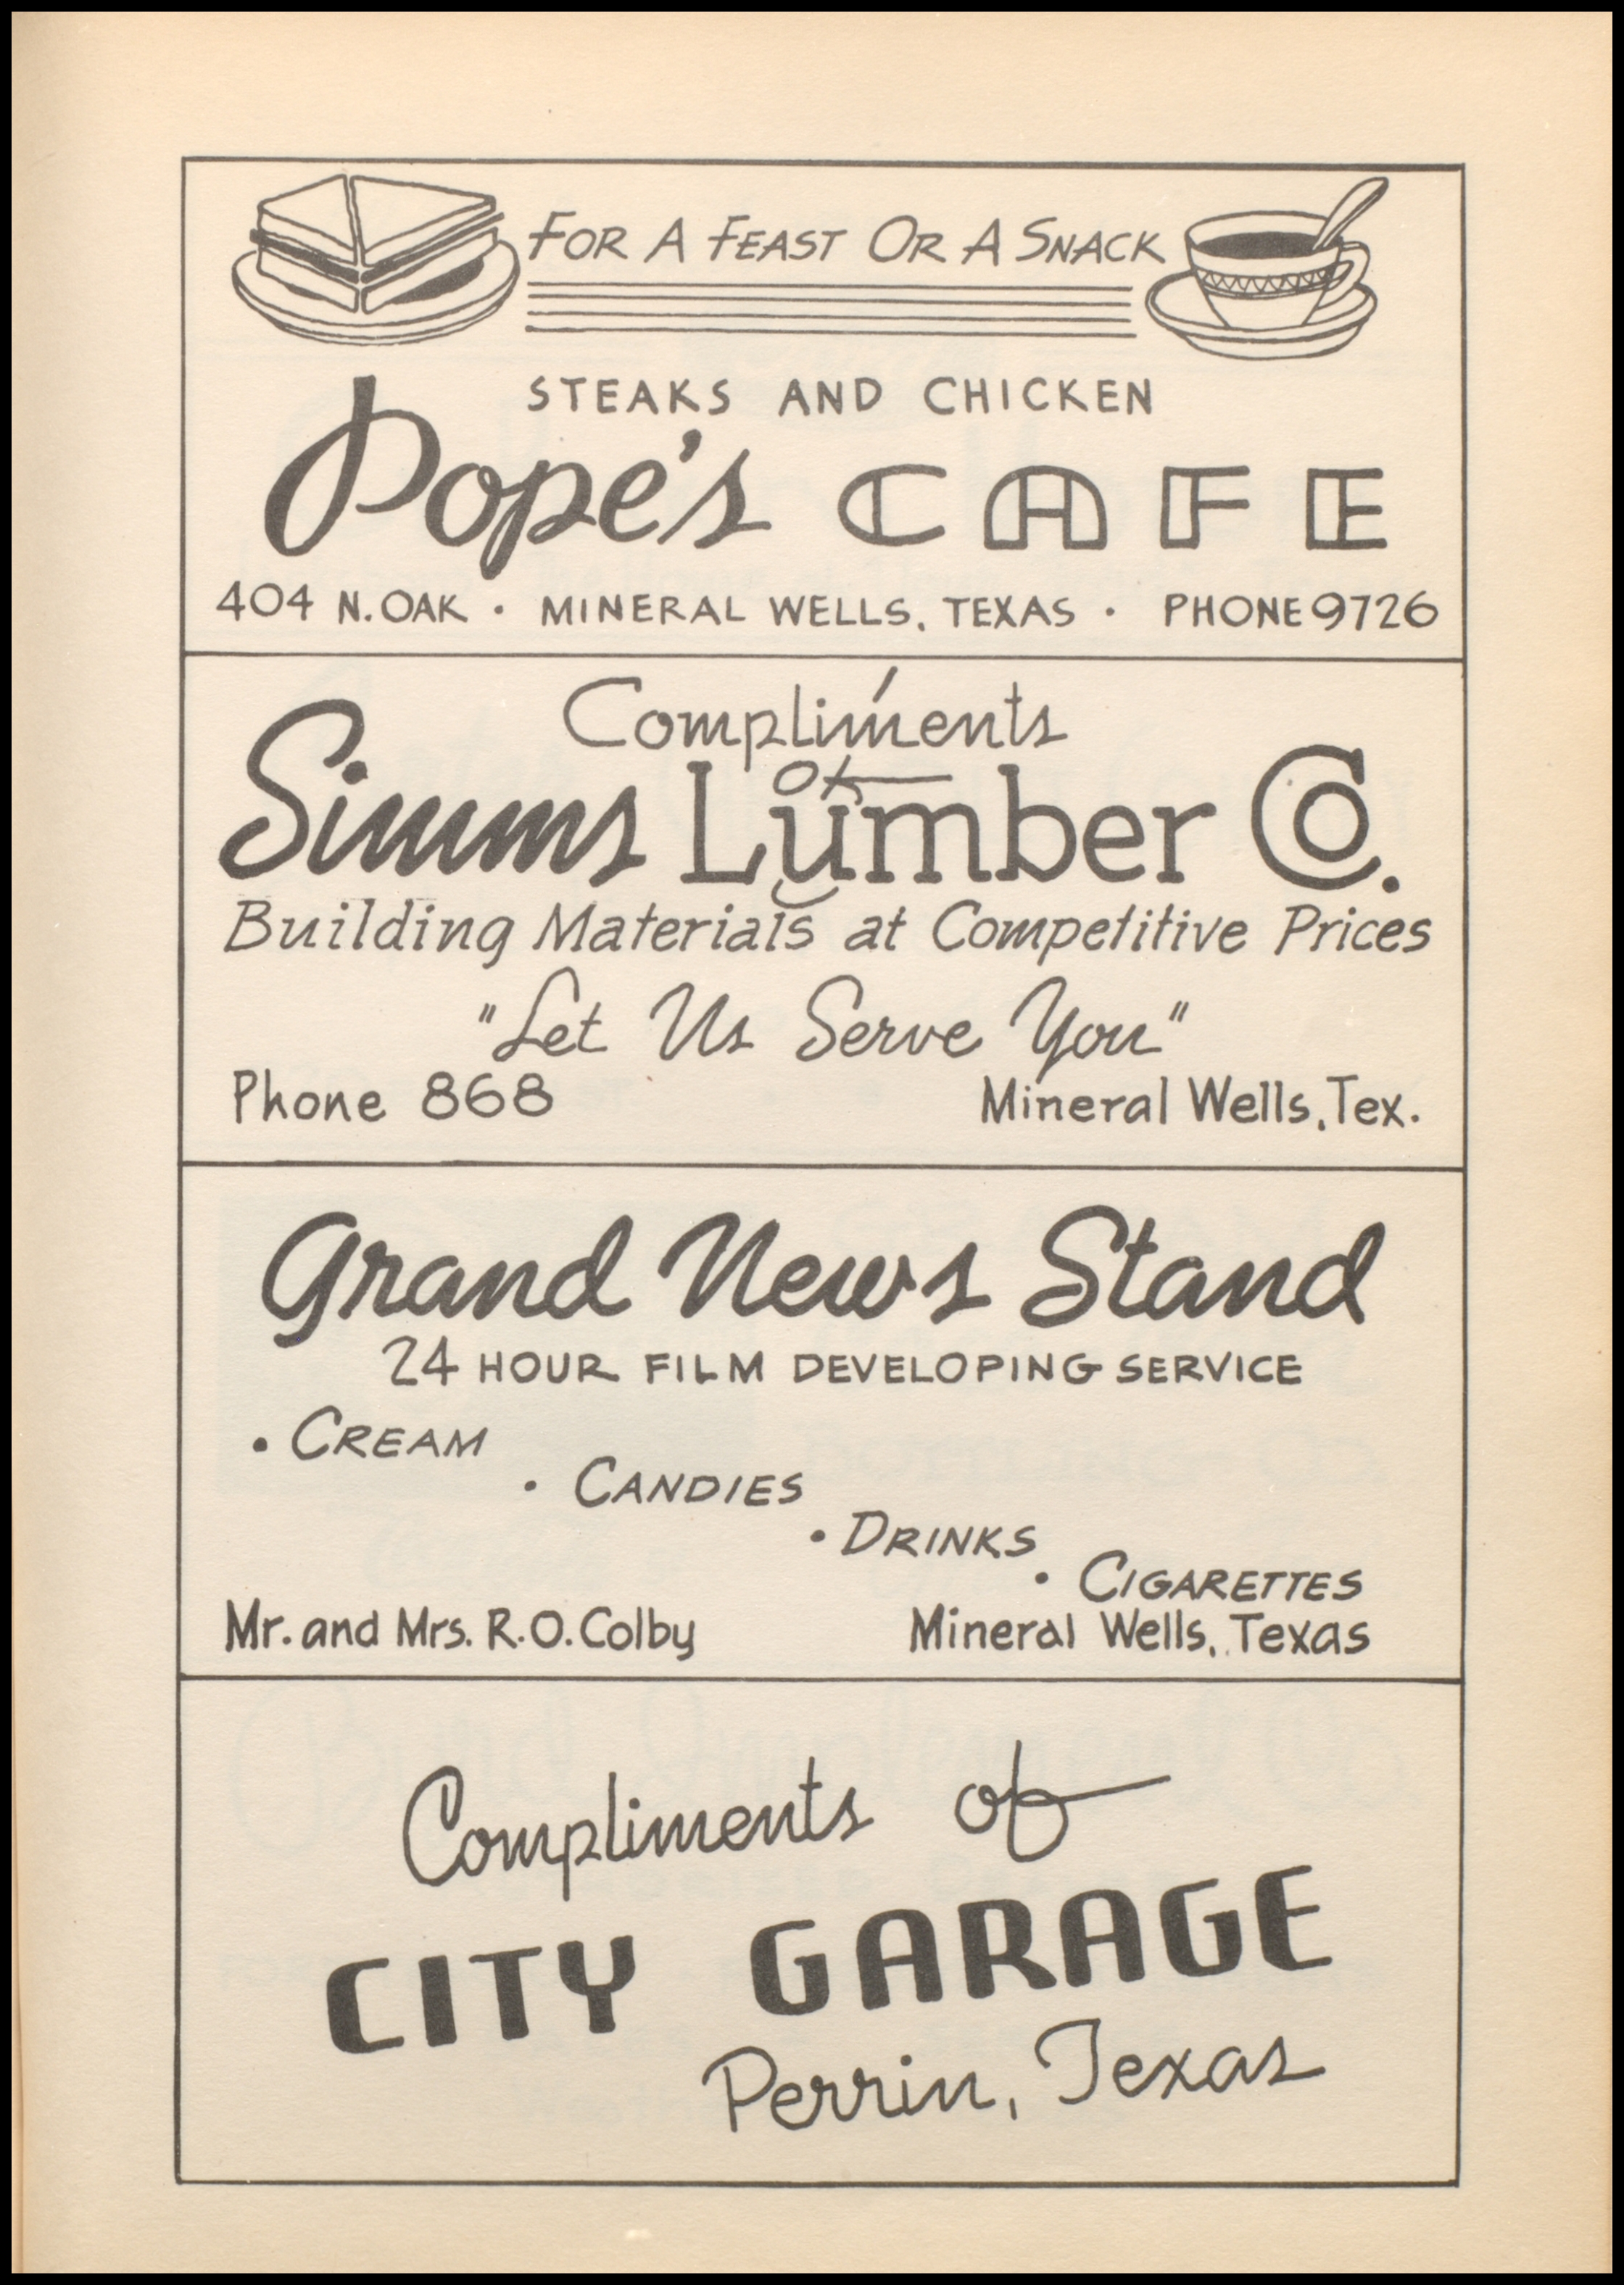 FOR A FEAST OR A SNACK
STEAKS AND CHICKEN
Pope's CAFE
404 N. OAK · MINERAL WELLS, TEXAS · PHONE 9726
Compliments
of
Simms Lumber Co.
Building Materials at Competitive Prices
"Let Us Serve You"
Phone 868 Mineral Wells, Tex.
Grand News Stand
24 HOUR FILM DEVELOPING SERVICE
· CREAM
· CANDIES
· DRINKS
· CIGARETTES
Mr. and Mrs. R.O. Colby Mineral Wells, Texas
Compliments of
CITY GARAGE
Perrin, Texas